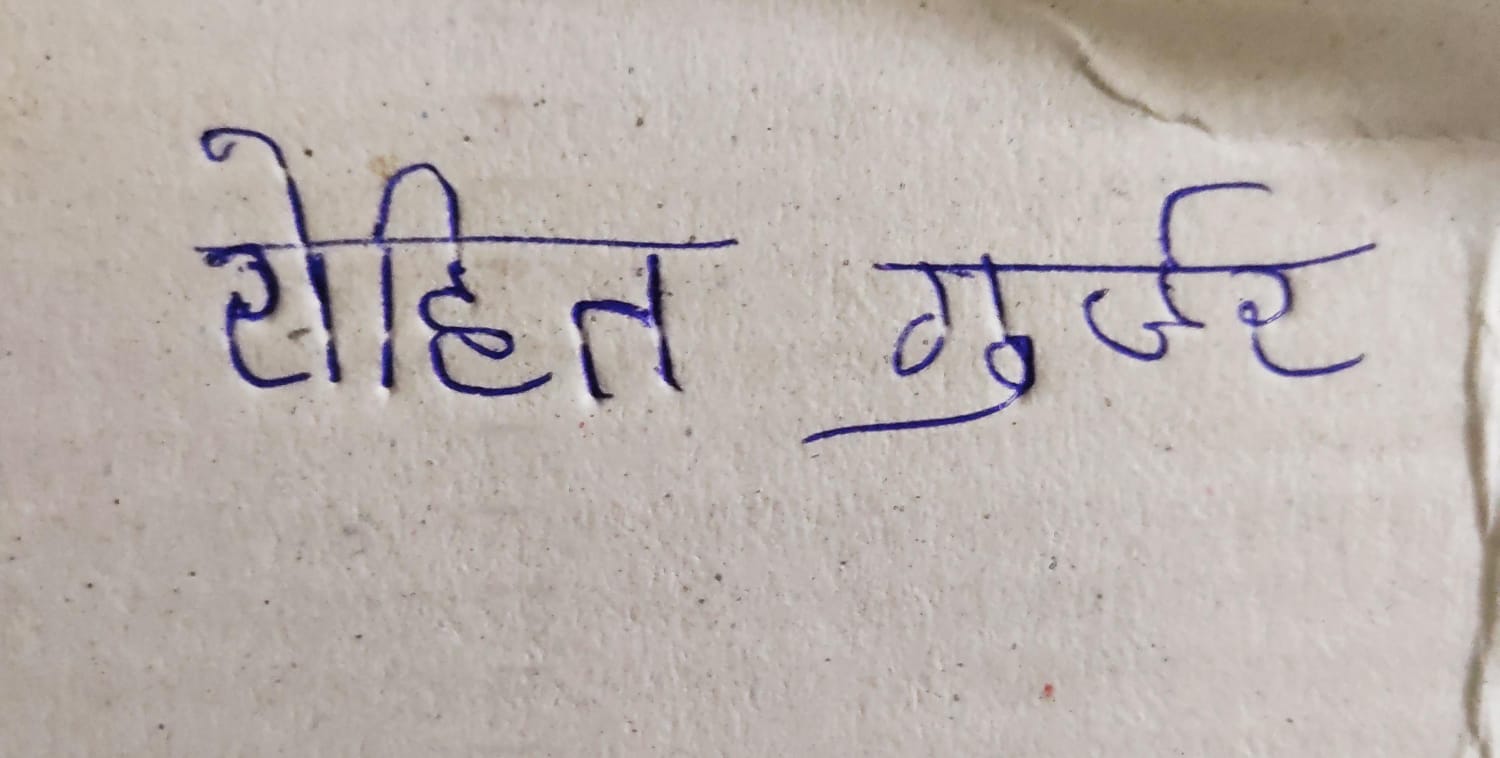 रोहित गुर्जर